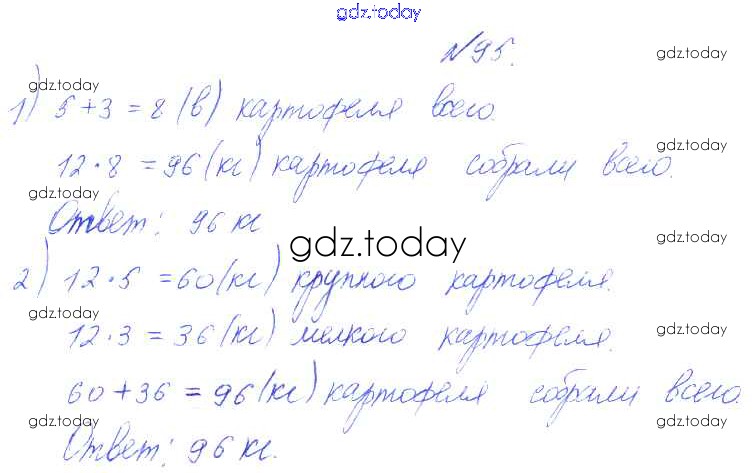 gdz.today
№95.
gdz.today
gdz.today
1) 5+3=8 (в) картофеля всего.
gdz.today
12·8 =96 (кг) картофеля собрали всего.
gdz.today
Ответ: 96 кг
gdz.today
gdz.today
2) 12·5 =60 (кг) крупного картофеля.
gdz.today
12·3 = 36 (кг) мелкого картофеля.
gdz.today
60+36 = 96 (кг) картофеля собрали всего.
gdz.today
gdz.today
Ответ: 96 кг.